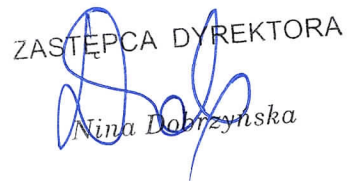 ZASTĘPCA DYREKTORA
Nina Dobrzyńska